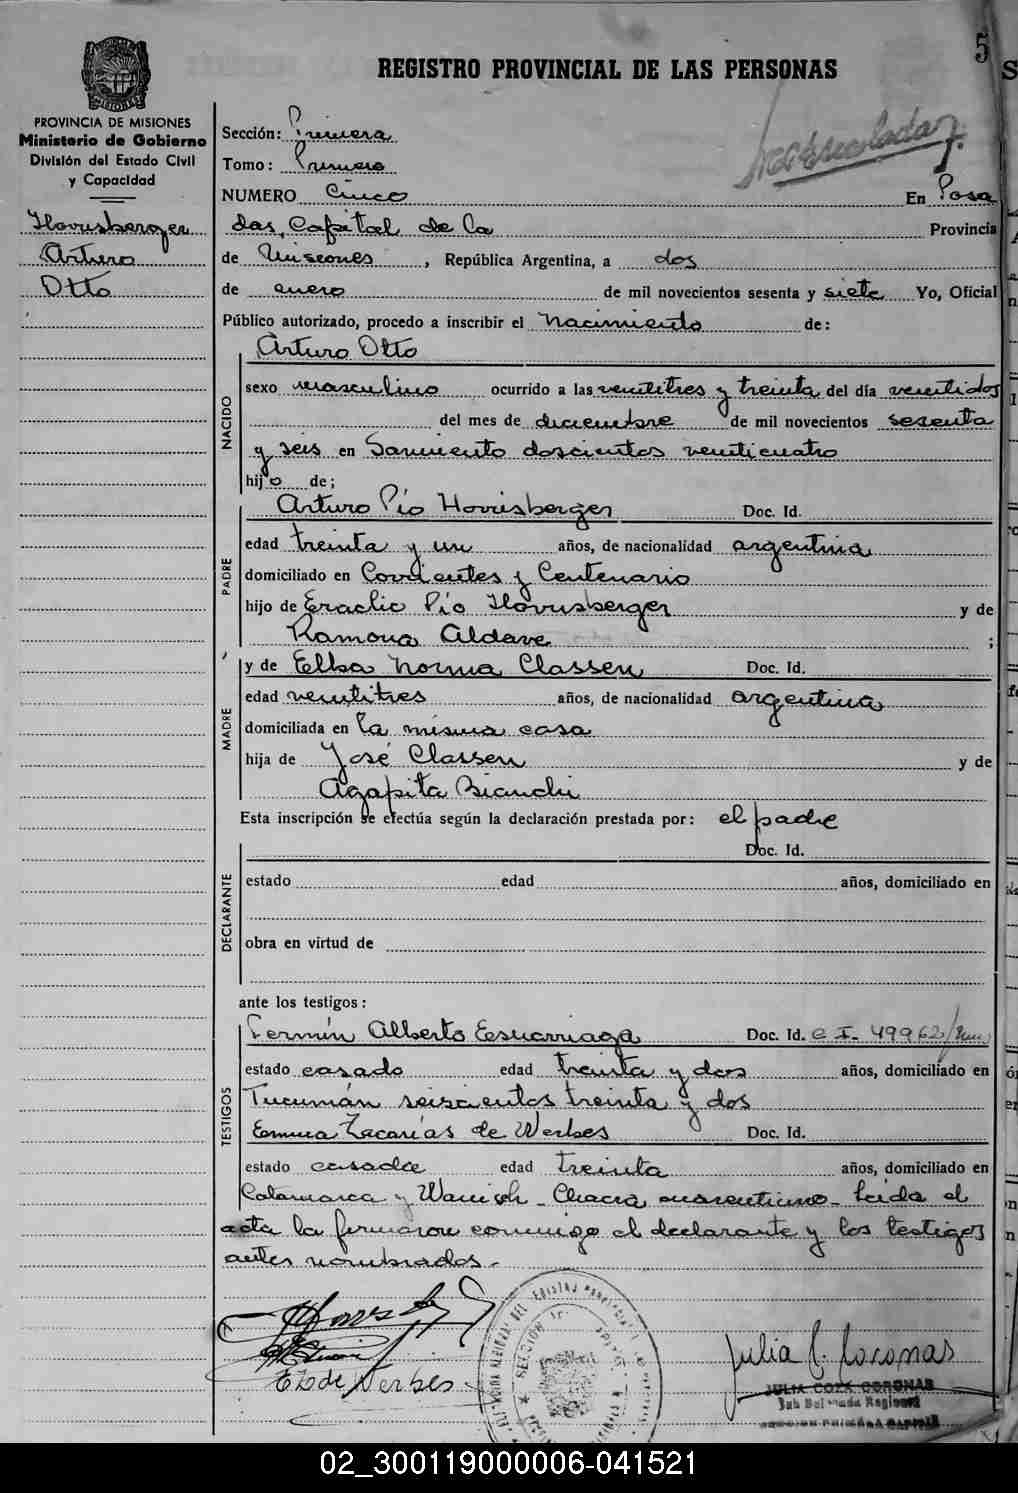 5
REGISTRO PROVINCIAL DE LAS PERSONAS
PROVINCIA DE MISIONES
Ministerio de Gobierno
División del Estado Civil
y Capacidad
Hovusberger
Arturo
Otto
Sección: Primera
Tomo: Primero
NUMERO Cinco En Posa
das, Capital de la Provincia
de Misiones, República Argentina, a dos
de enero de mil novecientos sesenta y siete Yo, Oficial
Público autorizado, procedo a inscribir el Nacimiento de:
NACIDO
Arturo Otto
sexo masculino ocurrido a las veintitres y treinta del día veintidos
del mes de diciembre de mil novecientos sesenta
y seis en Sarmiento doscientos veinticuatro
hijo de:
PADRE
Arturo Pío Hovisberger Doc. Id.
edad treinta y un años, de nacionalidad argentina
domiciliado en Corrientes y Centenario
hijo de Eraclio Pío Hovusberger y de
Ramona Aldave ;
MADRE
y de Elba Norma Classen Doc. Id.
edad veintitres años, de nacionalidad argentina
domiciliada en la misma casa
hija de José Classen y de
Agapita Bianchi
Esta inscripción se efectúa según la declaración prestada por: el padre
DECLARANTE
Doc. Id.
estado edad años, domiciliado en
obra en virtud de
ante los testigos:
TESTIGOS
Fermín Alberto Doc. Id. C I. 49962
estado casado edad treinta y dos años, domiciliado en
Tucumán seiscientos treinta y dos
Emma Zacarías de Werbes Doc. Id.
estado casada edad treinta años, domiciliado en
Catamarca y Chacra Leida el
acta la firmaron conmigo el declarante y los testigos
antes nombrados.-
E Z de Werbes
SECCIÓN
Julia C. Coronas
JULIA COZA CORONAS
02_300119000006-041521